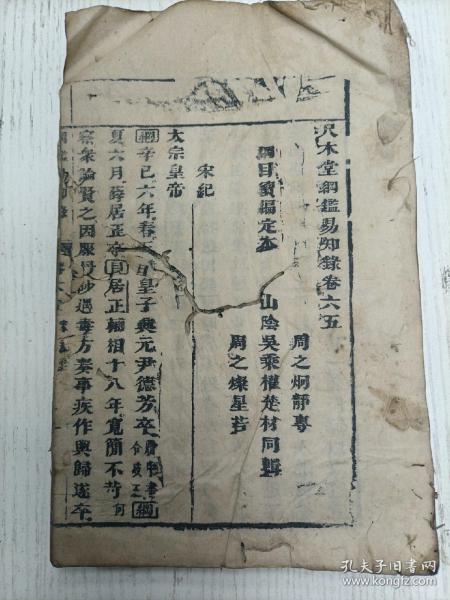 尺木堂綱鑑易知錄卷六五
周之炯靜專
綱目續編定本 山陰吳乘權楚材同輯
周之燦星若
宋紀
太宗皇帝
綱辛巳六年春三月皇子興元尹德芳卒 綱
夏六月薛居正卒目居正輔相十八年寬簡不苛
宗衆論賢之因服丹砂遇毒方奏事疾作輿歸遂卒
孔夫子旧书网
www.kongfz.com